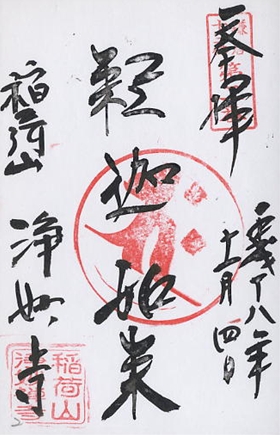 奉拝
平成十八年
十一月四日
釈迦如来
稲荷山
浄妙寺
稲荷山